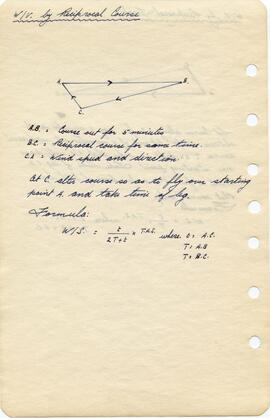 W/V. by Reciprocal Course
A. B.
C.
A.B. = Course out for 5 minutes
B.C. = Reciprocal course for same time.
C.A = Wind speed and direction.
At C. alter course so as to fly over starting
point A. and take time of leg.
Formula:
W/S. = t / 2T+t × T.A.S. where t = A.C.
T = A.B
T = B.C.